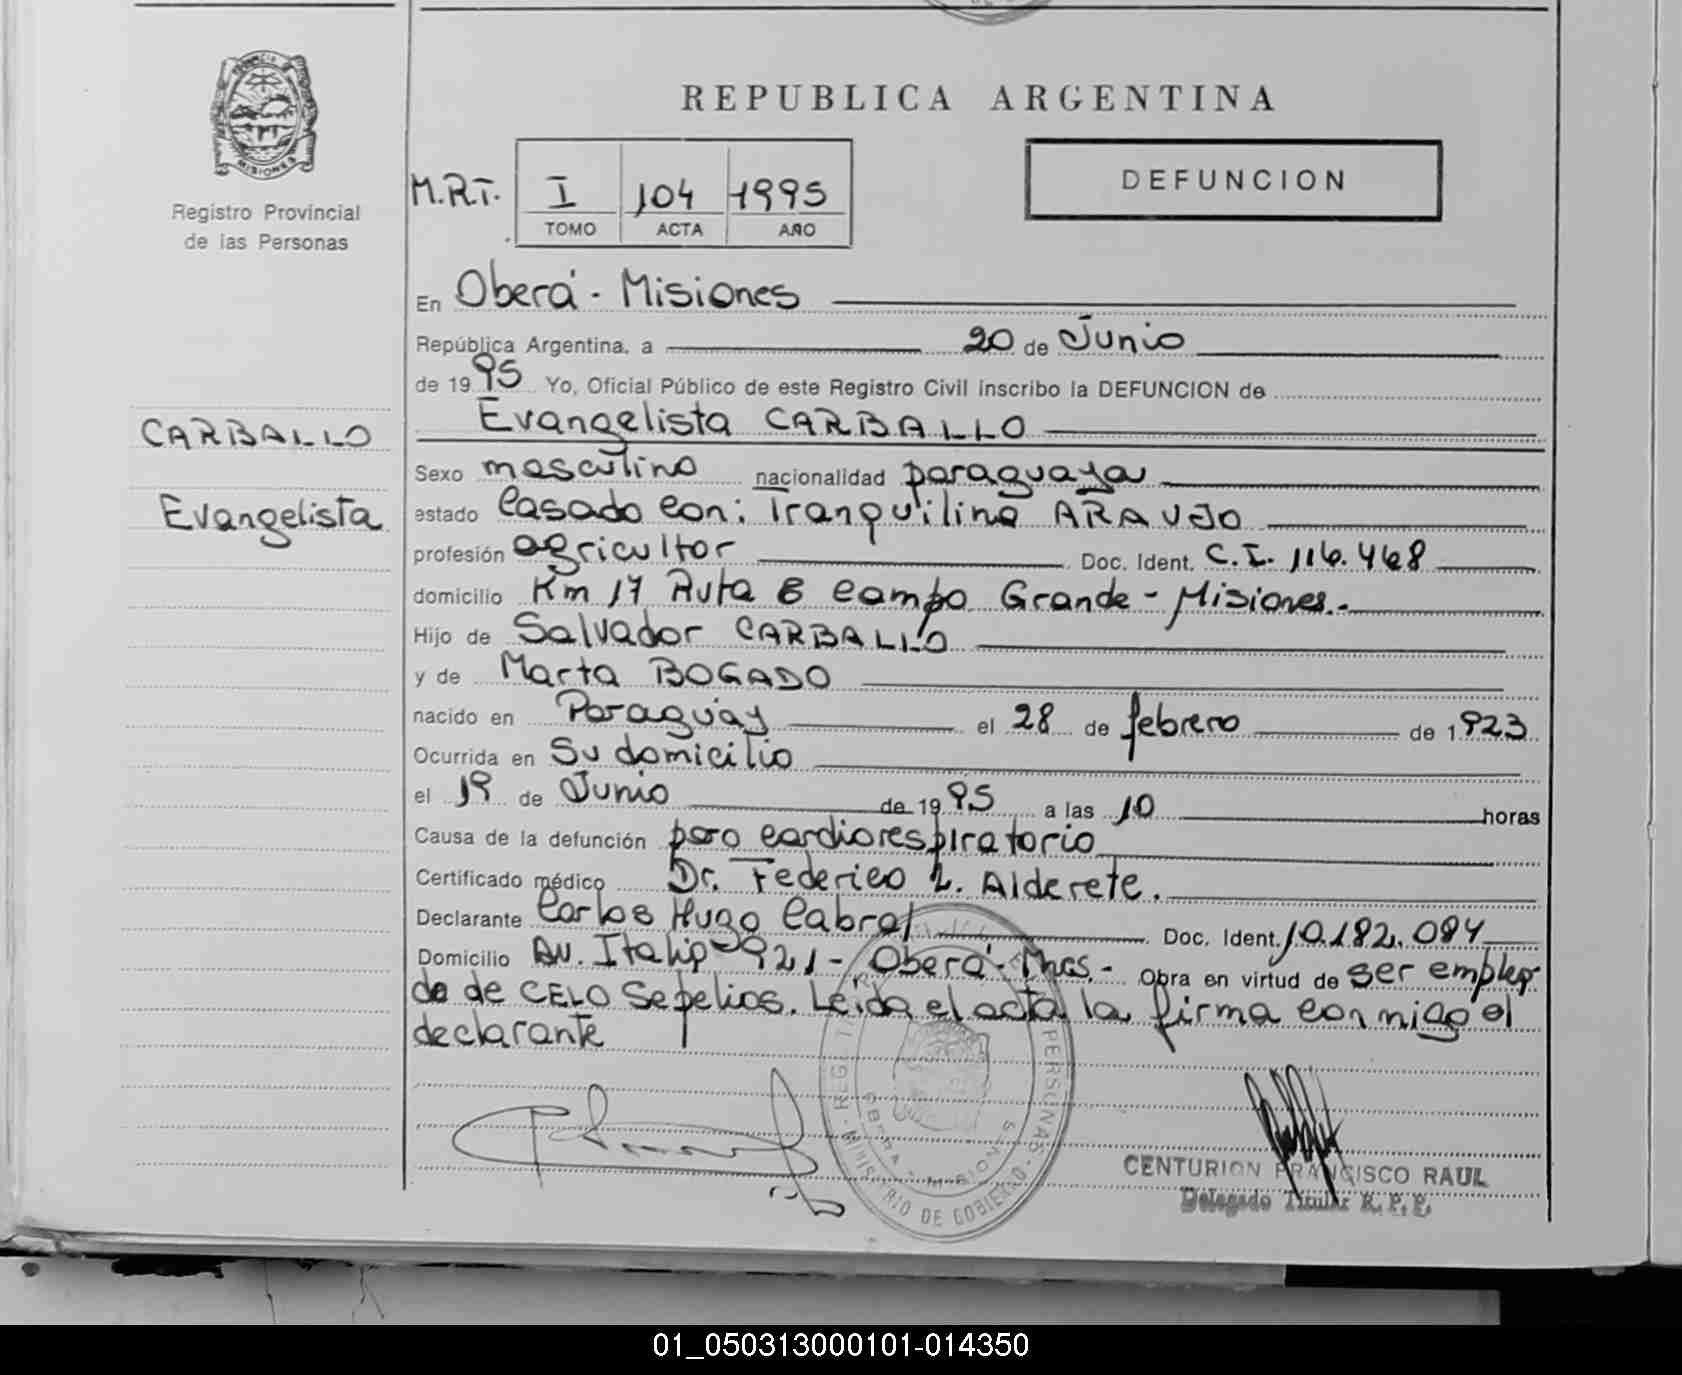 REPUBLICA ARGENTINA
MISIONES
Registro Provincial
de las Personas
M.R.T. I 104 1995
TOMO ACTA AÑO
DEFUNCION
En Oberá - Misiones
República Argentina, a 20 de Junio
de 1995 Yo, Oficial Público de este Registro Civil inscribo la DEFUNCION de
CARBALLO
Evangelista
Evangelista CARBALLO
Sexo masculino nacionalidad paraguaya
estado Casado con: Tranquilina ARAUJO
profesión agricultor Doc. Ident. C.I. 116.468
domicilio Km 17 Ruta 8 Campo Grande - Misiones.-
Hijo de Salvador CARBALLO
y de Marta BOGADO
nacido en Paraguay el 28 de febrero de 1923
Ocurrida en Su domicilio
el 19 de Junio de 1995 a las 10 horas
Causa de la defunción paro cardiorespiratorio
Certificado médico Dr. Federico L. Alderete.
Declarante Carlos Hugo Cabral Doc. Ident. 10.182.084
Domicilio Av. Italia 921 - Oberá - Mnes.- Obra en virtud de ser emplea
do de CELO Sepelios. Leida el acta la firma conmigo el
declarante
PERSONAS - MINISTERIO DE GOBIERNO
OBERA MISIONES
CENTURION FRANCISCO RAUL
Delegado Titular R.P.P.
01_050313000101-014350